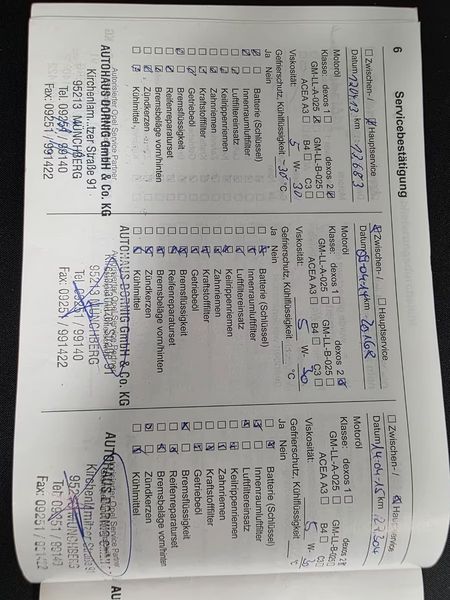 6
Servicebestätigung
Zwischen- / Hauptservice
Datum km 12683
Motoröl
Klasse: dexos 1 dexos 2
GM-LL-A-025 GM-LL-B-025
ACEA A3 B4 C3
Viskosität: 5 W- 30
Gefrierschutz, Kühlflüssigkeit -30 °C
Ja Nein
Batterie (Schlüssel)
Innenraumluftfilter
Luftfiltereinsatz
Keilrippenriemen
Zahnriemen
Kraftstofffilter
Getriebeöl
Bremsflüssigkeit
Reifenreparaturset
Bremsbeläge vorn/hinten
Zündkerzen
Kühlmittel
Autorisierter Opel Service Partner
AUTOHAUS DORNIG GmbH & Co. KG
Straße 91
95213 MÜNCHBERG
Tel. 09251 / 99140
Fax: 09251 / 991422
Zwischen- / Hauptservice
Datum km
Motoröl
Klasse: dexos 1 dexos 2
GM-LL-A-025 GM-LL-B-025
ACEA A3 B4 C3
Viskosität: 5 W- 30
Gefrierschutz, Kühlflüssigkeit °C
Ja Nein
Batterie (Schlüssel)
Innenraumluftfilter
Luftfiltereinsatz
Keilrippenriemen
Zahnriemen
Kraftstofffilter
Getriebeöl
Bremsflüssigkeit
Reifenreparaturset
Bremsbeläge vorn/hinten
Zündkerzen
Kühlmittel
Opel Service Partner
AUTOHAUS DORNIG GmbH & Co. KG
95213 MÜNCHBERG
Tel. / 99140
Fax: 09251 / 991422
Zwischen- / Hauptservice
Datum 14-04-15 km
Motoröl
Klasse: dexos 1 dexos 2
GM-LL-A-025 GM-LL-B-025
ACEA A3 B4 C3
Viskosität: 5 W-
Gefrierschutz, Kühlflüssigkeit
Ja Nein
Batterie (Schlüssel)
Innenraumluftfilter
Luftfiltereinsatz
Keilrippenriemen
Zahnriemen
Kraftstofffilter
Getriebeöl
Bremsflüssigkeit
Reifenreparaturset
Bremsbeläge vorn/hinten
Zündkerzen
Kühlmittel
Opel Service Partner
AUTOHAUS
MÜNCHBERG
Fax: 09251 / 991422